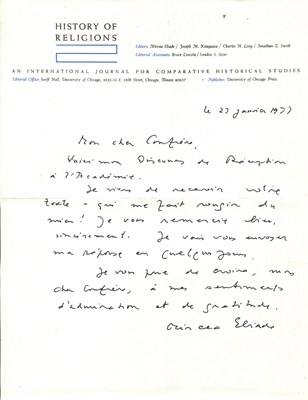 HISTORY OF
RELIGIONS
Editors: Mircea Eliade / Joseph M. Kitagawa / Charles H. Long / Jonathan Z. Smith
Editorial Assistants: Bruce Lincoln /
AN INTERNATIONAL JOURNAL FOR COMPARATIVE HISTORICAL STUDIES
Editorial Office: Swift Hall, University of Chicago, 1025-35 E. 58th Street, Chicago, Illinois 60637 • Publisher: University of Chicago Press
le 27 janvier 1977
Mon cher Confrère,
Voici mon Discours de Réception
à l'Académie.
Je viens de recevoir votre
texte - qui me fait rougir du
mien! Je vous remercie bien,
sincèrement. Je vais vous envoyer
ma réponse en quelques jours.
Je vous prie de croire, mon
cher Confrère, à mes sentiments
d'admiration et de gratitude.
Mircea Eliade